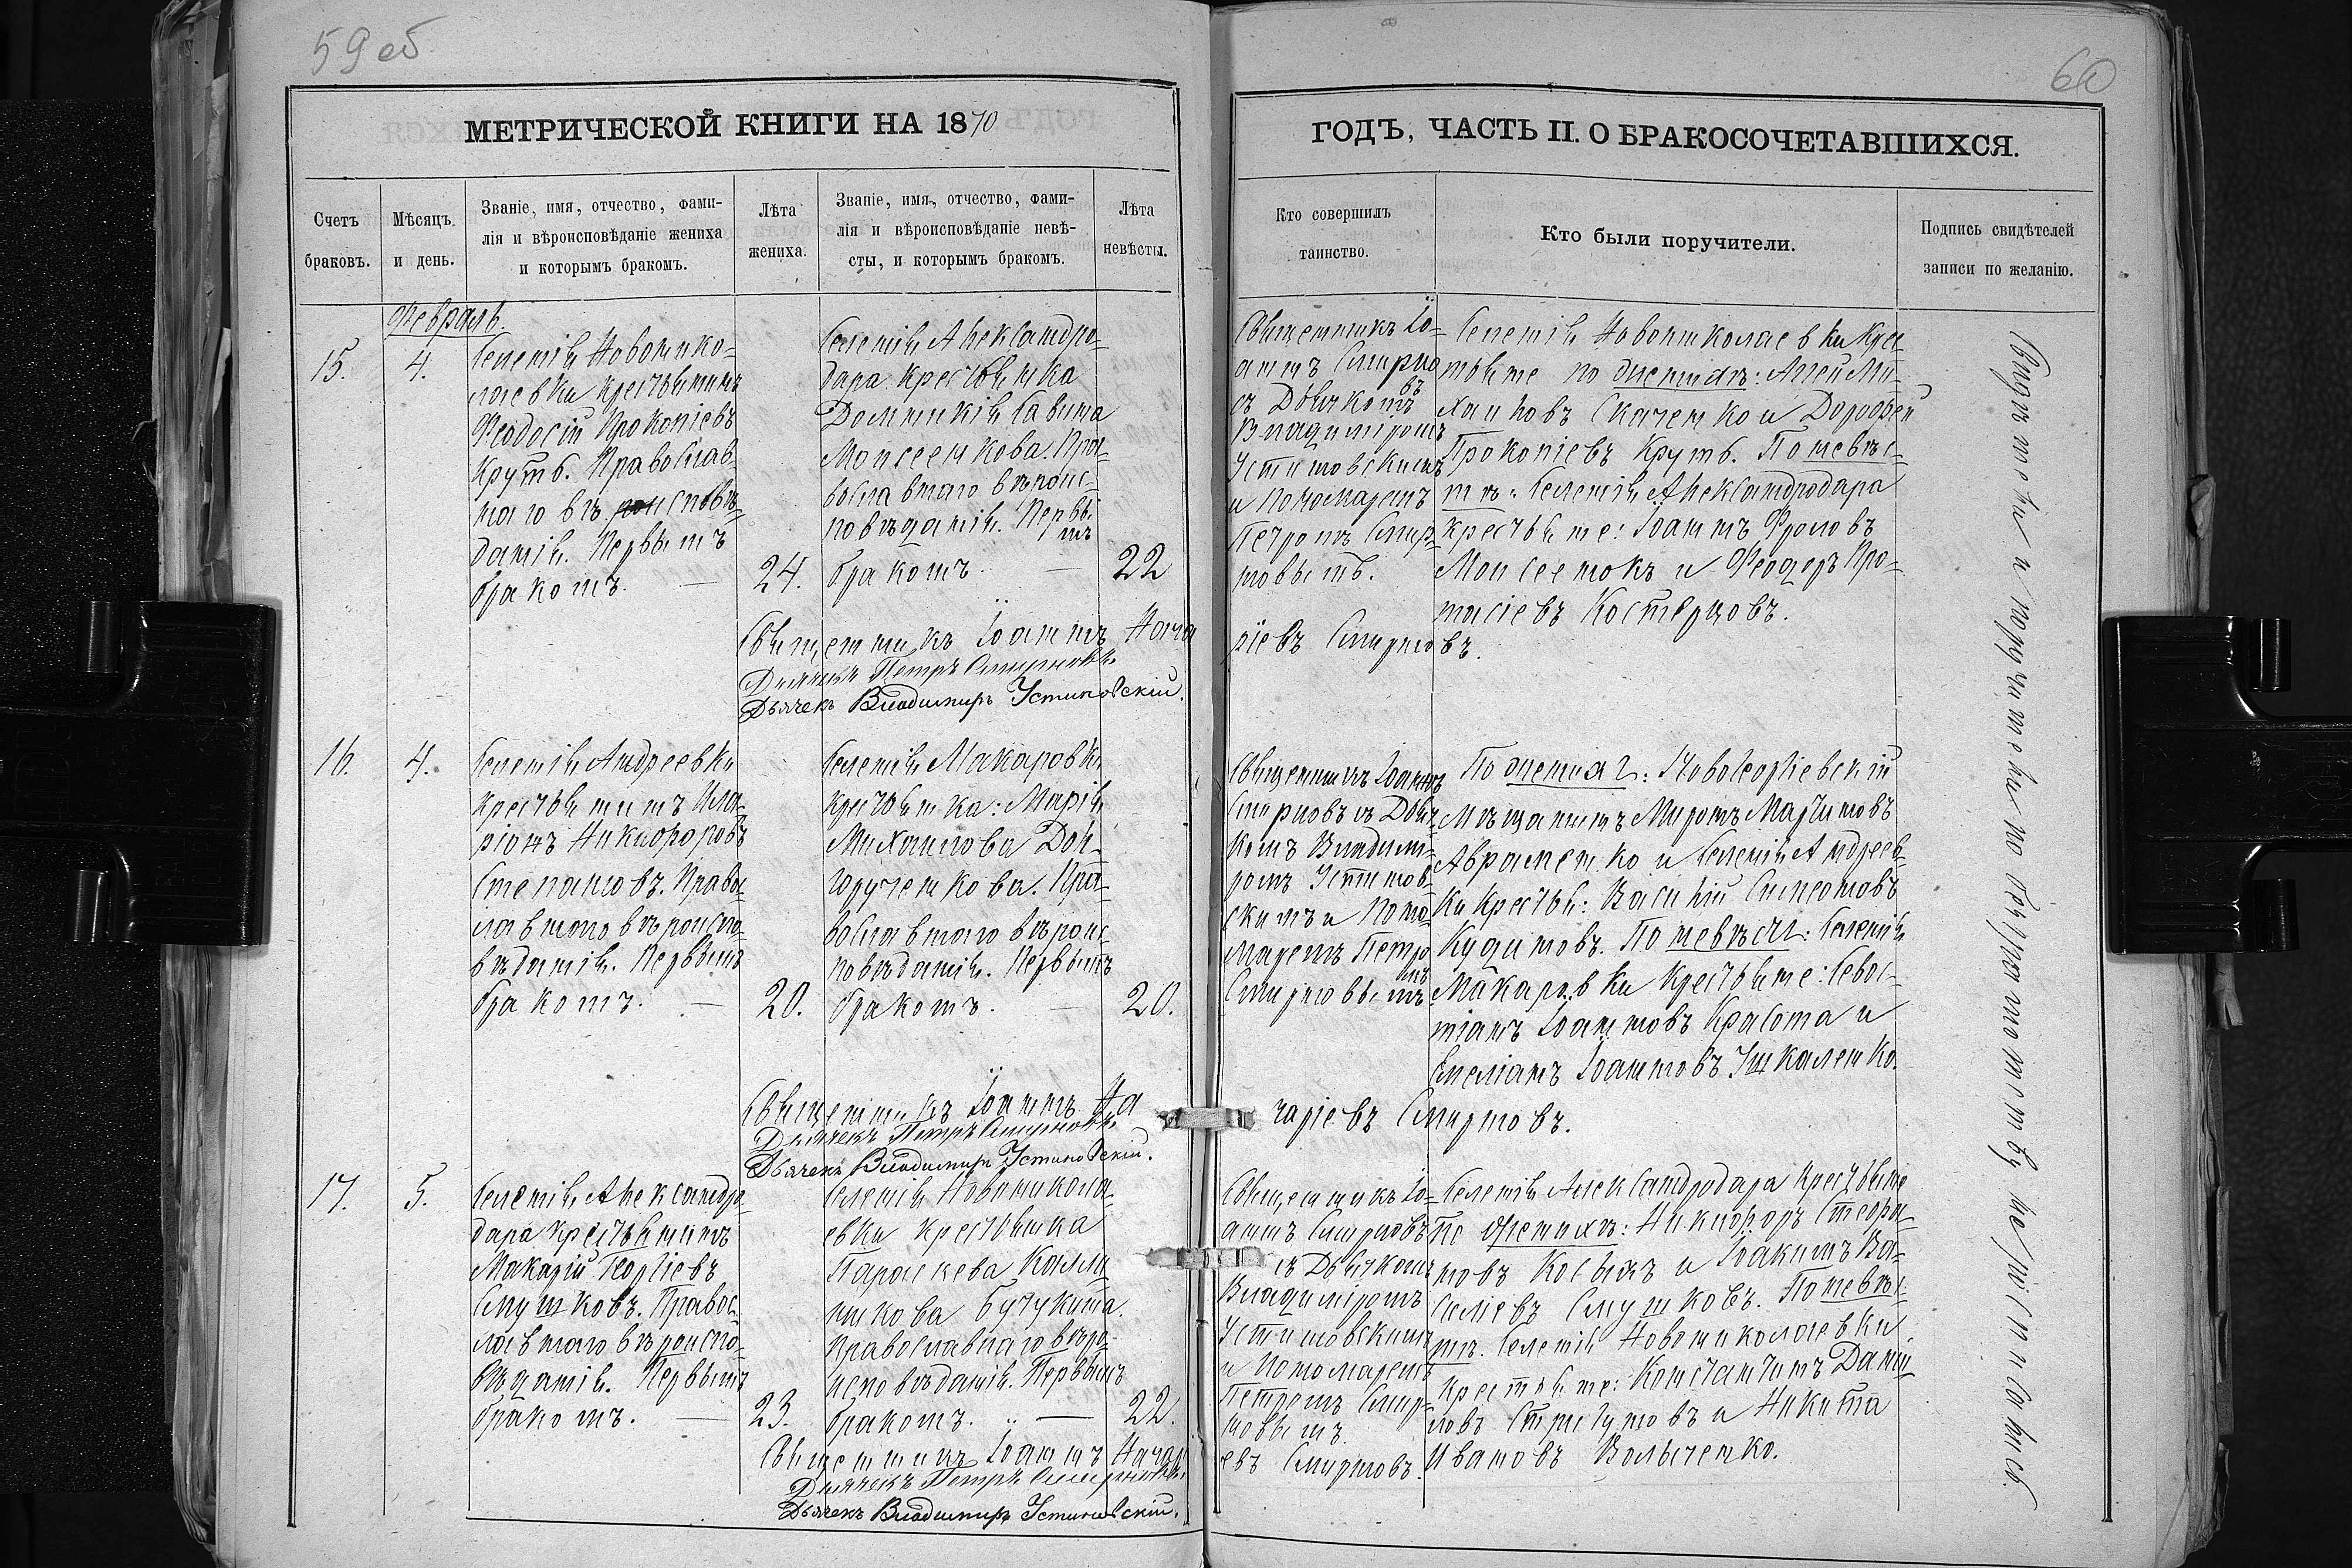 59 об
60
МЕТРИЧЕСКОЙ КНИГИ НА 1870
ГОДЪ, ЧАСТЬ II. О БРАКОСОЧЕТАВШИХСЯ.
Счетъ
браковъ.
Мѣсяцъ
и день.
Званіе, имя, отчество, фами-
лія и вѣроисповѣданіе жениха
и которымъ бракомъ.
Лѣта
жениха.
Званіе, имя, отчество, фами-
лія и вѣроисповѣданіе невѣ-
сты, и которымъ бракомъ.
Лѣта
невѣсты.
Кто совершилъ
таинство.
Кто были поручители.
Подпись свидѣтелей
записи по желанію.
Февраль.
15.
4.
Селенія Новонико-
лаевки крестьянинъ
Феодосій Прокопіевъ
Круть. Православ-
наго вѣроисповѣ-
данія. Первымъ
бракомъ.
24.
Селенія Александро-
дара крестьянка
Домникія Савина
Моисеенкова. Пра-
вославнаго вѣроис-
повѣданія. Первы-
мъ
бракомъ.
22
Священникъ Іо-
аннъ Смирно
въ
съ Дьячкомъ
Владиміромъ
Устиновскимъ
и Пономаремъ
Петромъ Смир-
новымъ.
Селенія Новониколаевки крес-
тьяне по женихѣ: Алексѣй Ми-
хаиловъ Скаченко и Дорофей
Прокопіевъ Круть. По невѣс-
тѣ: Селенія Александродара
крестьяне: Іоаннъ Фроловъ
Моисеенокъ и Феодоръ Про-
тасіевъ Костерцовъ.
Священникъ Іоаннъ Назаріевъ Смирновъ.
Дьячекъ Петръ Смирновъ
Дьячекъ Владиміръ Устиновскій.
16.
4.
Селенія Андреевки
крестьянинъ Ила-
ріонъ Никифоровъ
Степановъ. Правос-
лавнаго вѣроиспо-
вѣданія. Первымъ
бракомъ.
20.
Селенія Макаровки
крестьянка: Марія
Михаилова Дол-
горученкова. Пра-
вославнаго вѣроис-
повѣданія. Первымъ
бракомъ.
20.
Священникъ Іоаннъ
Смирновъ съ Дьяч-
комъ Владими-
ромъ Устинов-
скимъ и Поно-
маремъ Петро
мъ
Смирновымъ
По женихѣ: Новогеоргіевскій
мѣщанинъ Миронъ Мартиновъ
Авраменко и Селенія Андреев-
ки крестьян: Василій Симеоновъ
Кудиновъ. По невѣстѣ: Селенія
Макаровки крестьяне: Севас-
тіанъ Іоанновъ Красота и
Емеліанъ Іоанновъ Ушкаленко.
Священникъ Іоаннъ Назаріевъ Смирновъ.
Дьячекъ Петръ Смирновъ
Дьячекъ Владиміръ Устиновскій.
17.
5.
Селенія Александро-
дара крестьянинъ
Макарій Георгіевъ
Смушковъ. Правос-
лавнаго вѣроиспо-
вѣданія. Первымъ
бракомъ.
23.
Селенія Новоникола-
евки крестьянка
Параскева
Бутукина.
Православнаго вѣро-
исповѣданія. Первымъ
бракомъ.
22.
Священникъ Іо-
аннъ Смирновъ
съ Дьячкомъ
Владиміромъ
Устиновскимъ
и Пономаремъ
Петромъ Смир-
новымъ.
Селенія Александродара крестьяне
по женихѣ: Никифоръ Стефа-
новъ Косыхъ и Іоакимъ Ва-
силіевъ Смушковъ. По невѣс-
тѣ. Селенія Новониколаевки
крестьяне: Константинъ Дани-
ловъ Стригуновъ и Никита
Ивановъ Волыченко.
Священникъ Іоаннъ Назаріевъ Смирновъ.
Дьячекъ Петръ Смирновъ
Дьячекъ Владиміръ Устиновскій.
Свидѣтели и поручители по безграмотству не росписались.